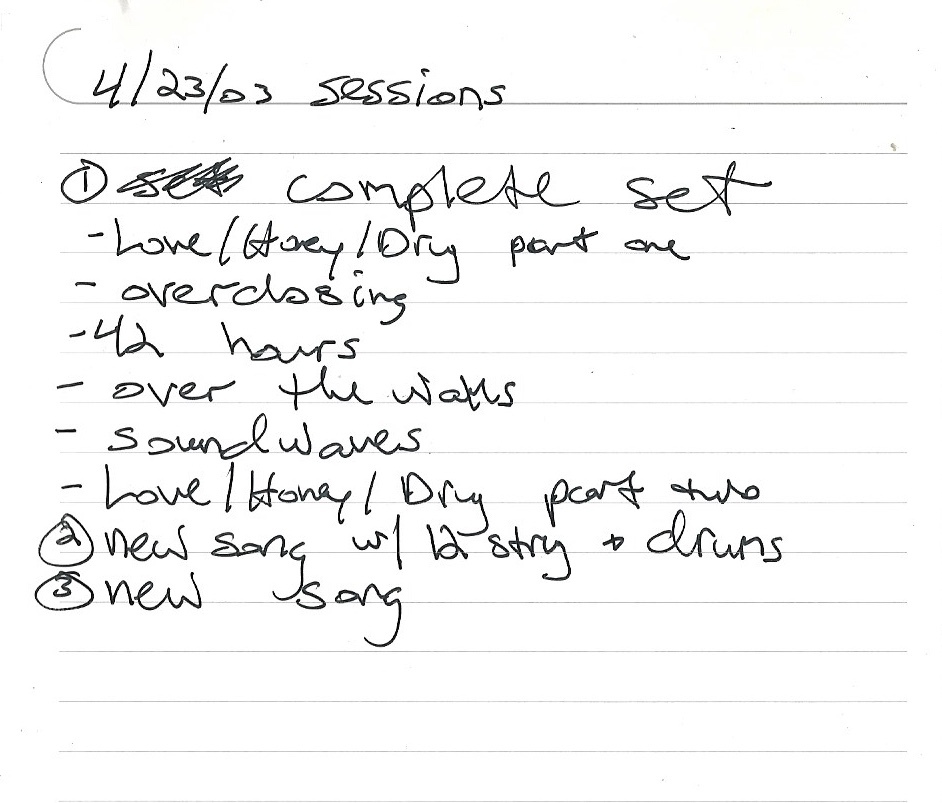 4/23/03 sessions
① complete set
- Love/Honey/Dry part one
- overdosing
- 42 hours
- over the walls
- soundwaves
- Love/Honey/Dry part two
② new song w/ 12 strg + drums
③ new song